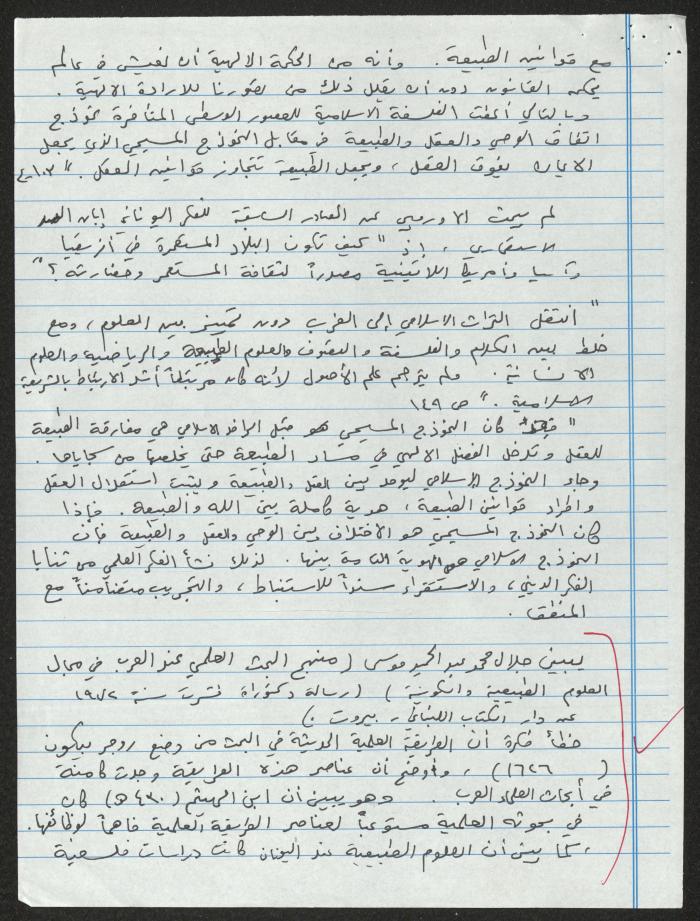 مع قوانين الطبيعة. وأنه من الحكمة الالهية أن نعيش في عالم
يحكمه القانون دون أن يقلل ذلك من تصورنا للارادة الالهية.
وبالتالي أعطت الفلسفة الاسلامية للعصور الوسطى المتأخرة نموذج
اتفاق الوحي والعقل والطبيعة في مقابل النموذج المسيحي الذي يجعل
الايمان يفوق العقل، ويجعل الطبيعة تتجاوز قوانين العقل." ١٠٣
لم يبحث الاوروبي عن المصادر السابقة للفكر اليوناني إبان
الاستعماري، إذ "كيف تكون البلاد المستعمرة في أفريقيا
وآسيا وأمريكا اللاتينية مصدراً لثقافة المستعمر وحضارته؟"
"انتقل التراث الاسلامي إلى الغرب دون تمييز بين العلوم، ومع
خلط بين الكلام والفلسفة والتصوف والعلوم الطبيعية والرياضية والعلوم
الانسانية. ولم يترجم علم الأصول لأنه كان مرتبطاً أشد الارتباط بالشريعة
الاسلامية." ص ١٤٩
" كان النموذج المسيحي هو قبل الرافد الاسلامي هي مفارقة الطبيعة
للعقل وتدخل الفضل الالهي في مسار الطبيعة حتى يخلصها من
وجاء النموذج الاسلامي ليوحد بين العقل والطبيعة ويثبت استقلال العقل
واطراد قوانين الطبيعة، هوية كاملة بين الله والطبيعة. فإذا
كان النموذج المسيحي هو الاختلاف بين الوحي والعقل والطبيعة فإن
النموذج الاسلامي هو الهوية التامة بينها. لذلك نشأ الفكر العلمي من ثنايا
الفكر الديني، والاستقراء سنداً للاستنباط، والتجريب متضامناً مع
المنطق.
يبين جلال محمد عبد الحميد موسى (منهج البحث العلمي عند العرب في مجال
العلوم الطبيعية والكونية) (رسالة دكتوراة نشرت سنة ١٩٧٢
عن دار الكتاب اللبناني، بيروت)
خطأ فكرة أن الطريقة العلمية الحديثة في البحث من وضع روجر بيكون
(١٦٢٦)، وأوضح أن عناصر هذه الطريقة وجدت كامنة
في أبحاث العلماء العرب. وهو يبين أن ابن الهيثم (٤٣٠ هـ) كان
في بحوثه العلمية مستوعباً لعناصر الطريقة العلمية فاهماً لوظائفها.
، كما يبين أن العلوم الطبيعية عند اليونان كانت دراسات فلسفية